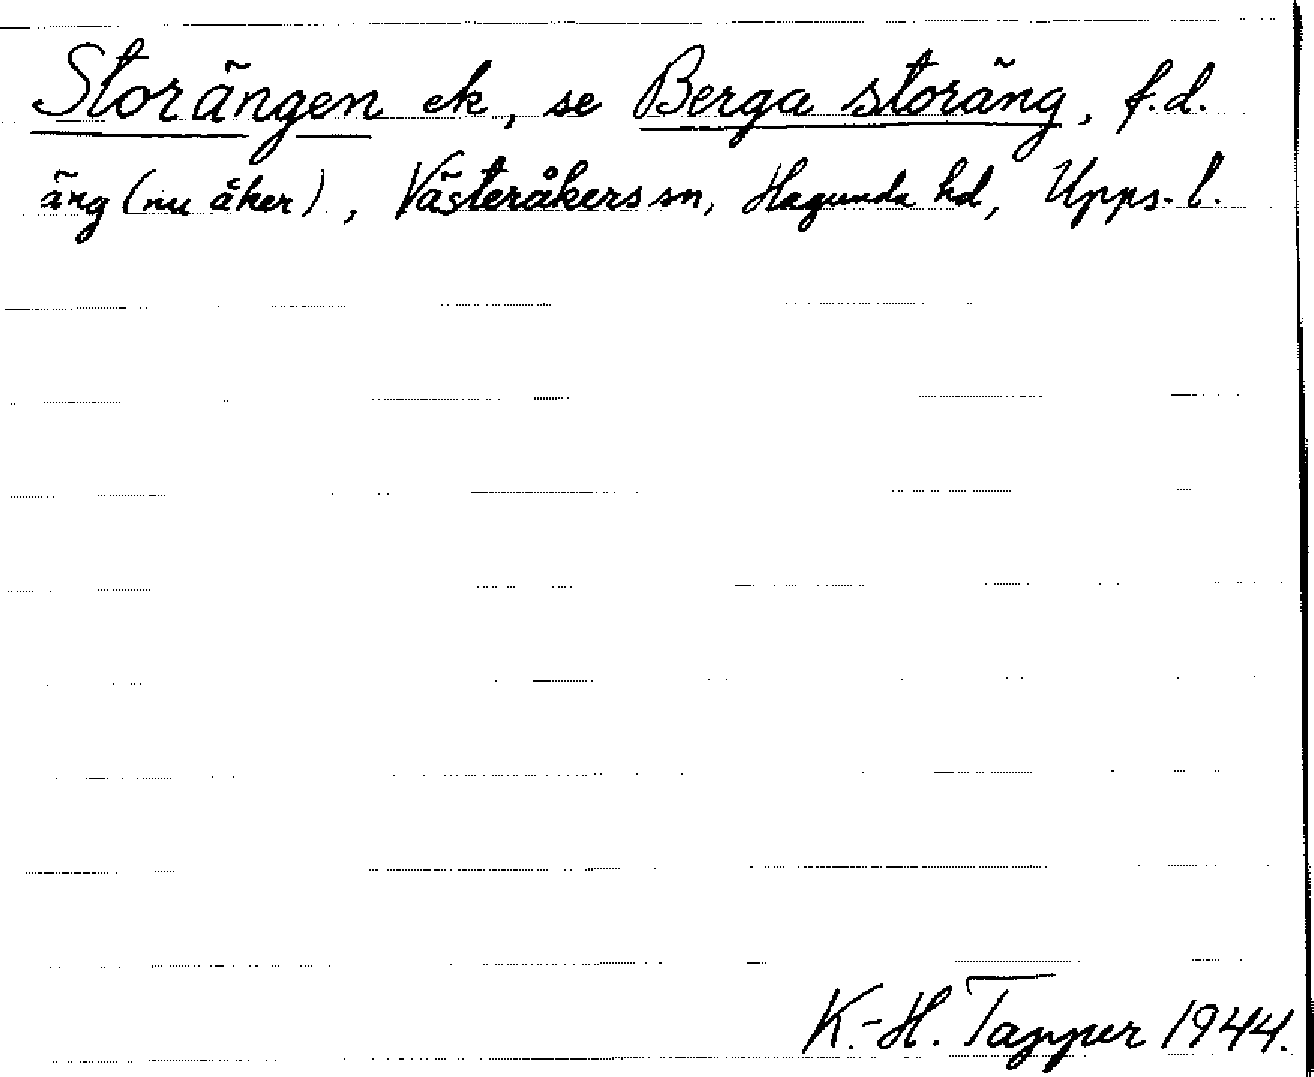 Storängen ek, se Berga storäng, f.d.
äng (nu åker), Västeråkers sn, Hagunda hd, Upps. l.
K.-H. Tapper 1944.